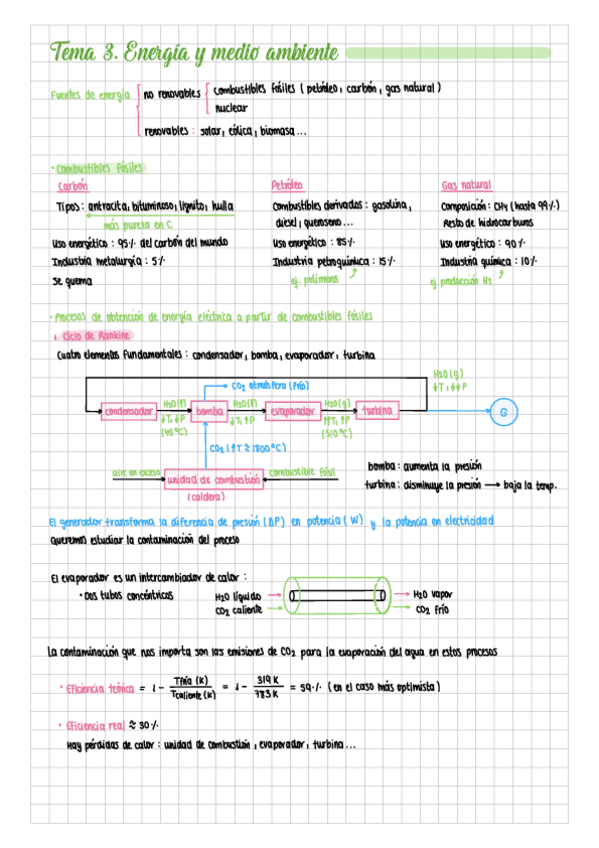 Tema 3. Energía y medio ambiente
Fuentes de energía
no renovables
combustibles fósiles (petróleo, carbón, gas natural)
nuclear
renovables : solar, eólica, biomasa...
· Combustibles fósiles
Carbón
Tipos : antracita, bituminoso, lignito, hulla
más pureza en C
Uso energético : 95% del carbón del mundo
Industria metalurgia : 5%
Se quema
Petróleo
Combustibles derivados : gasolina,
diésel, queroseno...
Uso energético : 85%
Industria petroquímica : 15%
ej. polímeros
Gas natural
Composición : CH4 (hasta 99%)
Resto de hidrocarburos
Uso energético : 90%
Industria química : 10%
ej. producción H2
· Procesos de obtención de energía eléctrica a partir de combustibles fósiles
1. Ciclo de Rankine
Cuatro elementos fundamentales : condensador, bomba, evaporador, turbina
H2O(g)
↓T, ↓↓P
CO2 atmósfera (frío)
condensador
H2O(l)
↓T, ↓P
(46ºC)
bomba
H2O(l)
↓T, ↑P
evaporador
H2O(g)
↑↑T, ↑P
(510ºC)
turbina
G
CO2 (↑T ≈ 1800ºC)
aire en exceso
unidad de combustión
(caldera)
combustible fósil
bomba : aumenta la presión
turbina : disminuye la presión → baja la temp.
El generador transforma la diferencia de presión (ΔP) en potencia (W) y la potencia en electricidad
Queremos estudiar la contaminación del proceso
El evaporador es un intercambiador de calor :
· Dos tubos concéntricos
H2O líquido
CO2 caliente
H2O vapor
CO2 frío
La contaminación que nos importa son las emisiones de CO2 para la evaporación del agua en estos procesos
· Eficiencia teórica = 1 - Tfría (K) / Tcaliente (K) = 1 - 319 K / 783 K = 59% (en el caso más optimista)
· Eficiencia real ≈ 30%
Hay pérdidas de calor : unidad de combustión, evaporador, turbina...